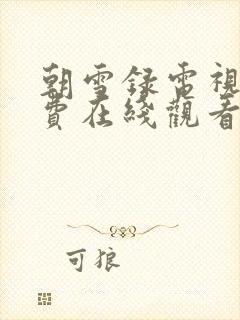 朝雪録電視
費在綫觀看
可狼